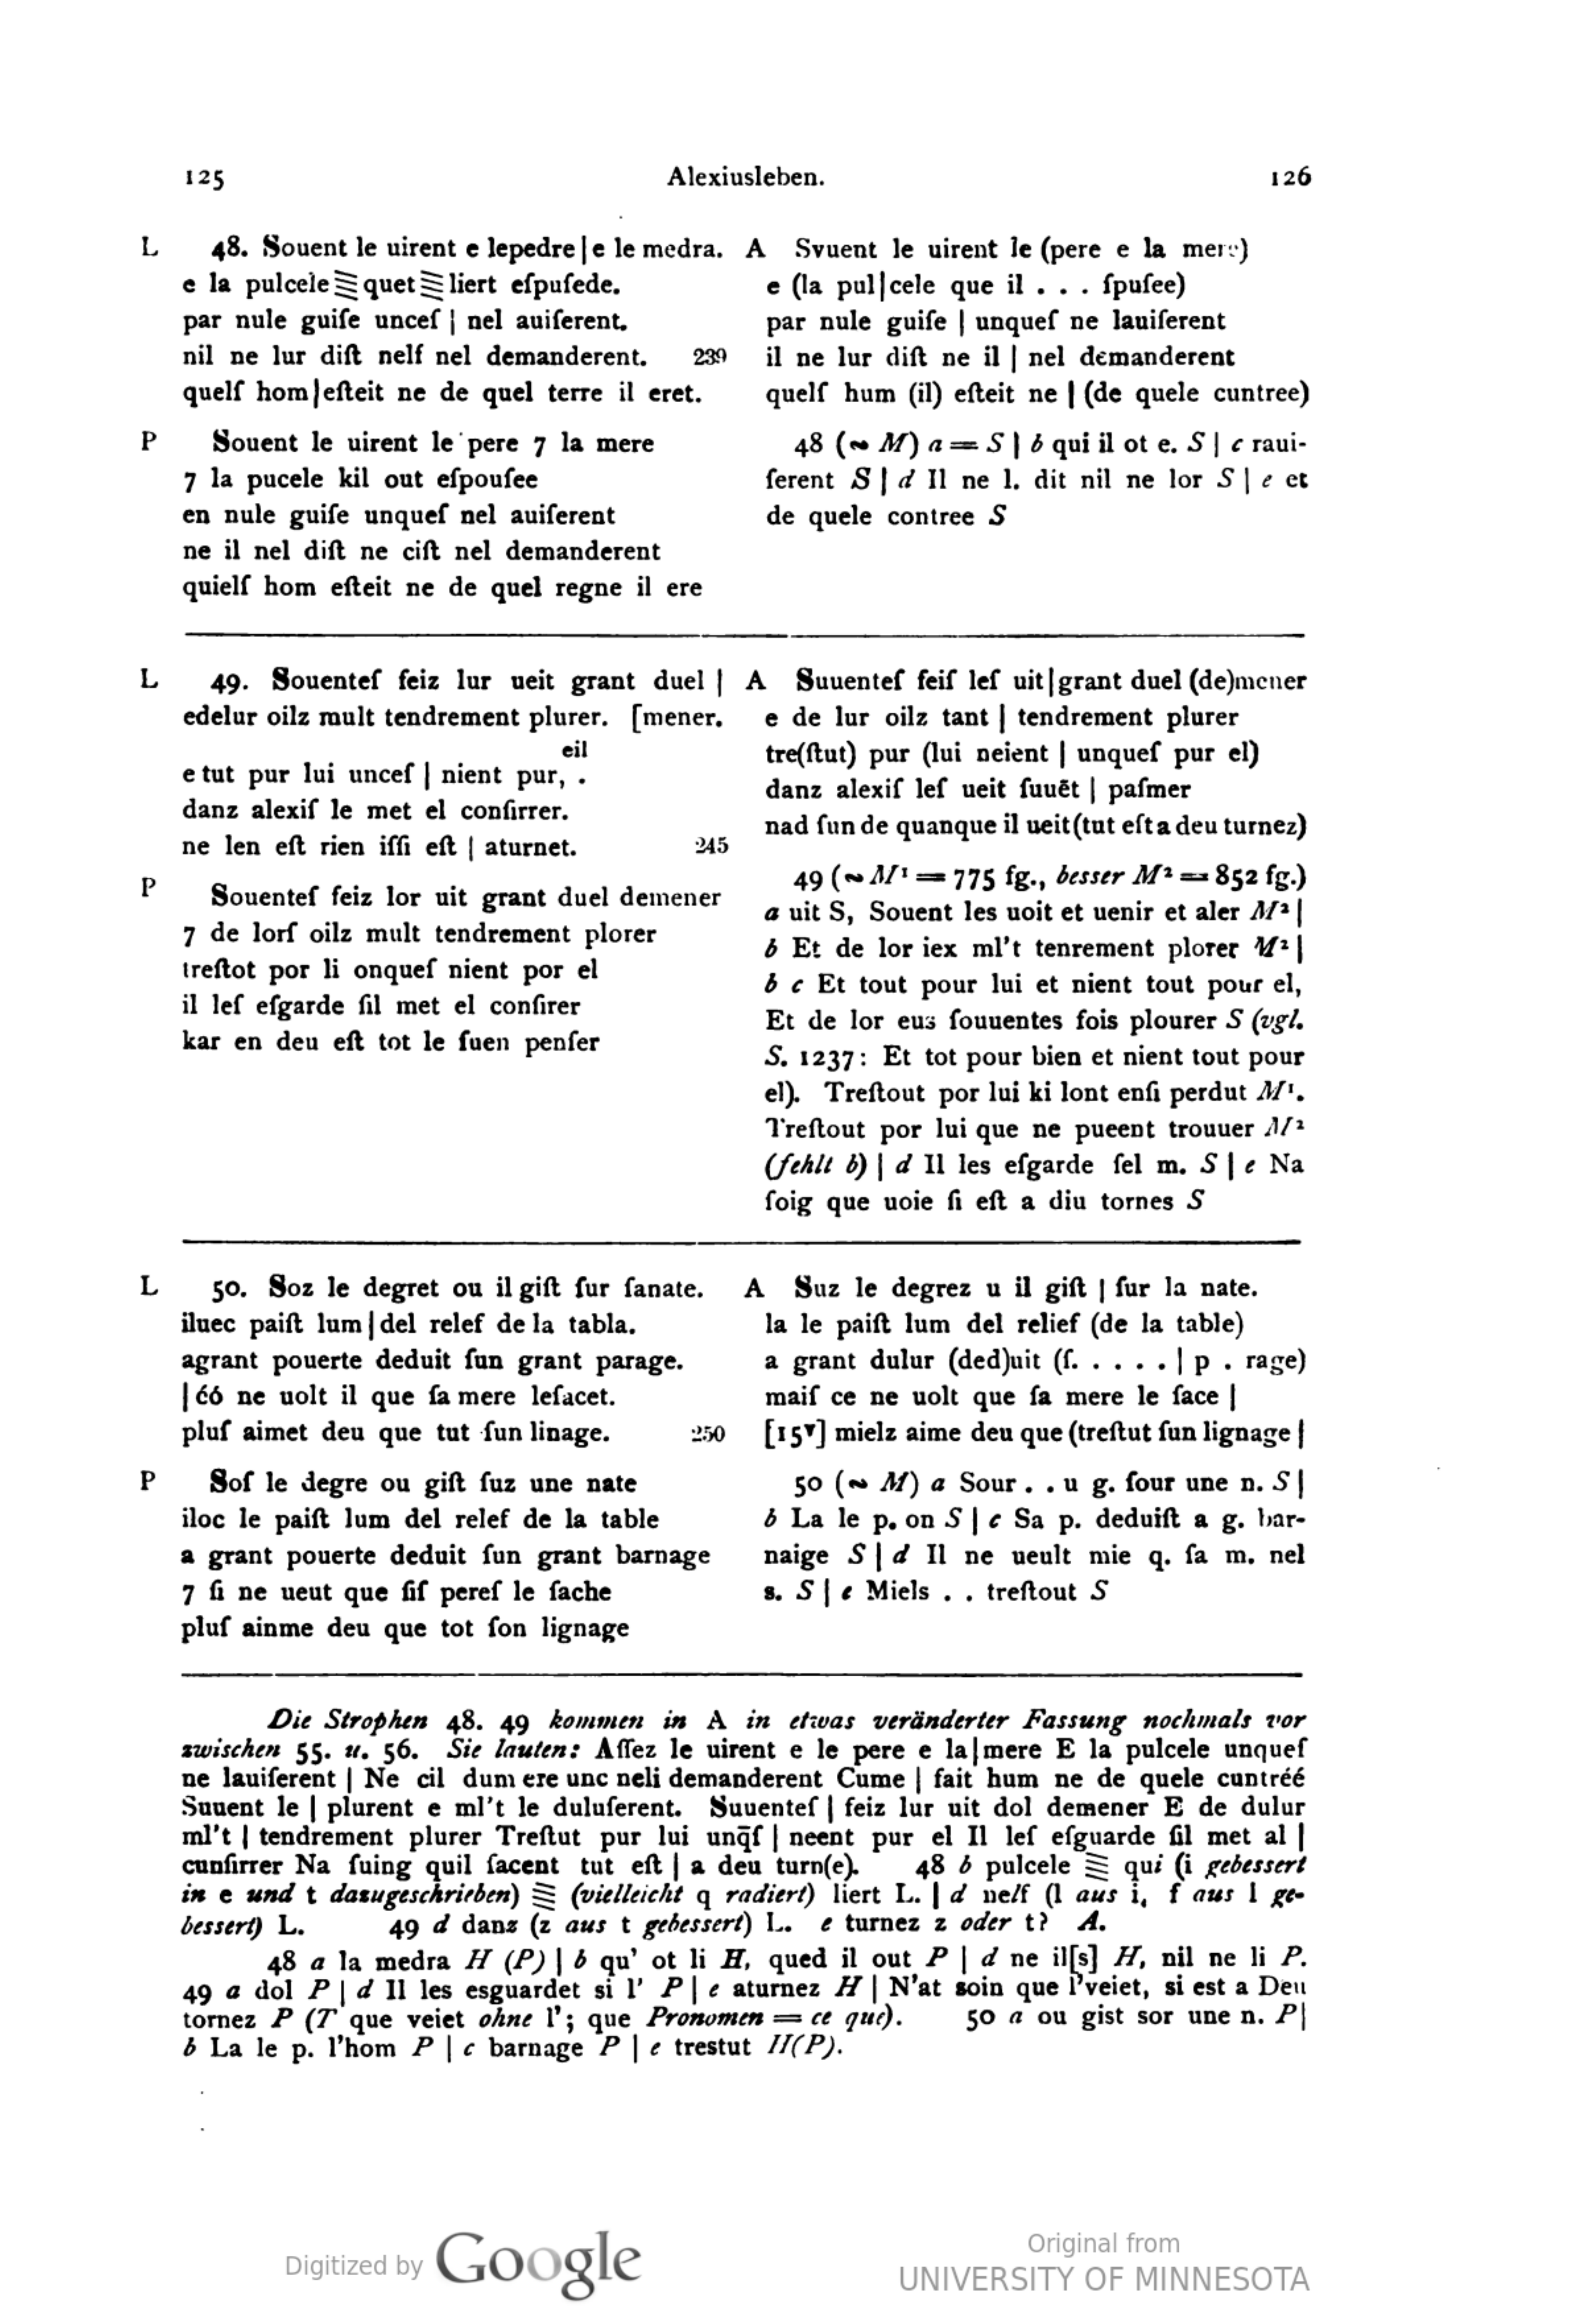 125 Alexiusleben. 126
L 48. Souent le uirent e lepedre|e le medra.
e la pulcele quet liert eſpuſede.
par nule guiſe unceſ | nel auiſerent.
nil ne lur diſt nelſ nel demanderent. 239
quelſ hom|eſteit ne de quel terre il eret.
P Souent le uirent le pere 7 la mere
7 la pucele kil out eſpouſee
en nule guiſe unqueſ nel auiſerent
ne il nel diſt ne ciſt nel demanderent
quielſ hom eſteit ne de quel regne il ere
A Svuent le uirent le (pere e la mere)
e (la pul|cele que il . . . ſpuſee)
par nule guiſe | unqueſ ne lauiſerent
il ne lur diſt ne il | nel demanderent
quelſ hum (il) eſteit ne | (de quele cuntree)
48 (~ M) a = S | b qui il ot e. S | c raui-
ſerent S | d Il ne l. dit nil ne lor S | e et
de quele contree S
L 49. Souenteſ feiz lur ueit grant duel |
edelur oilz mult tendrement plurer. [mener.
eil
e tut pur lui unceſ | nient pur, .
danz alexiſ le met el conſirrer.
ne len eſt rien iſſi eſt | aturnet. 245
P Souenteſ feiz lor uit grant duel demener
7 de lorſ oilz mult tendrement plorer
treſtot por li onqueſ nient por el
il leſ eſgarde ſil met el conſirer
kar en deu eſt tot le ſuen penſer
A Suuenteſ feiſ leſ uit|grant duel (de)mener
e de lur oilz tant | tendrement plurer
tre(ſtut) pur (lui neient | unqueſ pur el)
danz alexiſ leſ ueit ſuuēt | paſmer
nad ſun de quanque il ueit(tut eſt a deu turnez)
49 (~ M¹ = 775 fg., besser M² = 852 fg.)
a uit S, Souent les uoit et uenir et aler M² |
b Et de lor iex ml't tenrement plorer M² |
b c Et tout pour lui et nient tout pour el,
Et de lor eus ſouuentes fois plourer S (vgl.
S. 1237: Et tot pour bien et nient tout pour
el). Treſtout por lui ki lont enſi perdut M¹.
Treſtout por lui que ne pueent trouuer M²
(fehlt b) | d Il les eſgarde ſel m. S | e Na
ſoig que uoie ſi eſt a diu tornes S
L 50. Soz le degret ou il giſt ſur ſanate.
iluec paiſt lum|del relef de la tabla.
agrant pouerte deduit ſun grant parage.
|ćó ne uolt il que ſa mere leſacet.
pluſ aimet deu que tut ſun linage. 250
P Soſ le degre ou giſt ſuz une nate
iloc le paiſt lum del relef de la table
a grant pouerte deduit ſun grant barnage
7 ſi ne ueut que ſiſ pereſ le ſache
pluſ ainme deu que tot ſon lignage
A Suz le degrez u il giſt | ſur la nate.
la le paiſt lum del relief (de la table)
a grant dulur (ded)uit (ſ. . . . . | p . rage)
maiſ ce ne uolt que ſa mere le ſace |
[15ᵛ] mielz aime deu que (treſtut ſun lignage |
50 (~ M) a Sour . . u g. ſour une n. S |
b La le p. on S | c Sa p. deduiſt a g. bar-
naige S | d Il ne ueult mie q. ſa m. nel
s. S | e Miels . . treſtout S
Die Strophen 48. 49 kommen in A in etwas veränderter Fassung nochmals vor
zwischen 55. u. 56. Sie lauten: Aſſez le uirent e le pere e la|mere E la pulcele unqueſ
ne lauiſerent | Ne cil dum ere unc neli demanderent Cume | fait hum ne de quele cuntréé
Suuent le | plurent e ml't le duluſerent. Suuenteſ | feiz lur uit dol demener E de dulur
ml't | tendrement plurer Treſtut pur lui unq̄ſ | neent pur el Il leſ eſguarde ſil met al |
cunſirrer Na ſuing quil facent tut eſt | a deu turn(e). 48 b pulcele qui (i gebessert
in e und t dazugeschrieben) (vielleicht q radiert) liert L. | d nelſ (l aus i, ſ aus l ge-
bessert) L. 49 d danz (z aus t gebessert) L. e turnez z oder t? A.
48 a la medra H (P) | b qu' ot li H, qued il out P | d ne il[s] H, nil ne li P.
49 a dol P | d Il les esguardet si l' P | e aturnez H | N'at soin que l'veiet, si est a Deu
tornez P (T que veiet ohne l'; que Pronomen = ce que). 50 a ou gist sor une n. P|
b La le p. l'hom P | c barnage P | e trestut H(P).
Digitized by Google
Original from
UNIVERSITY OF MINNESOTA